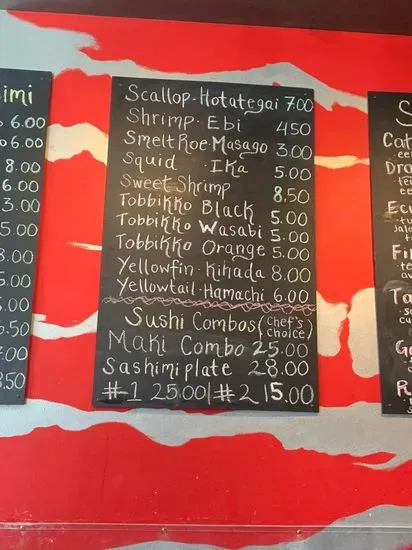 imi
6.00
6.00
8.00
6.00
3.00
5.00
8.00
5.00
5.00
6.50
7.00
8.50
Scallop-Hotategai 7.00
Shrimp-Ebi 4.50
Smelt Roe-Masago 3.00
Squid -Ika 5.00
Sweet Shrimp 8.50
Tobbikko Black 5.00
Tobbikko Wasabi 5.00
Tobbikko Orange 5.00
Yellowfin-Kihada 8.00
Yellowtail-Hamachi 6.00
Sushi Combos (chef's choice)
Maki Combo 25.00
Sashimi plate 28.00
#1 25.00 | #2 15.00
S
Cat
Dra
Ecu
Fir
To
Go
R